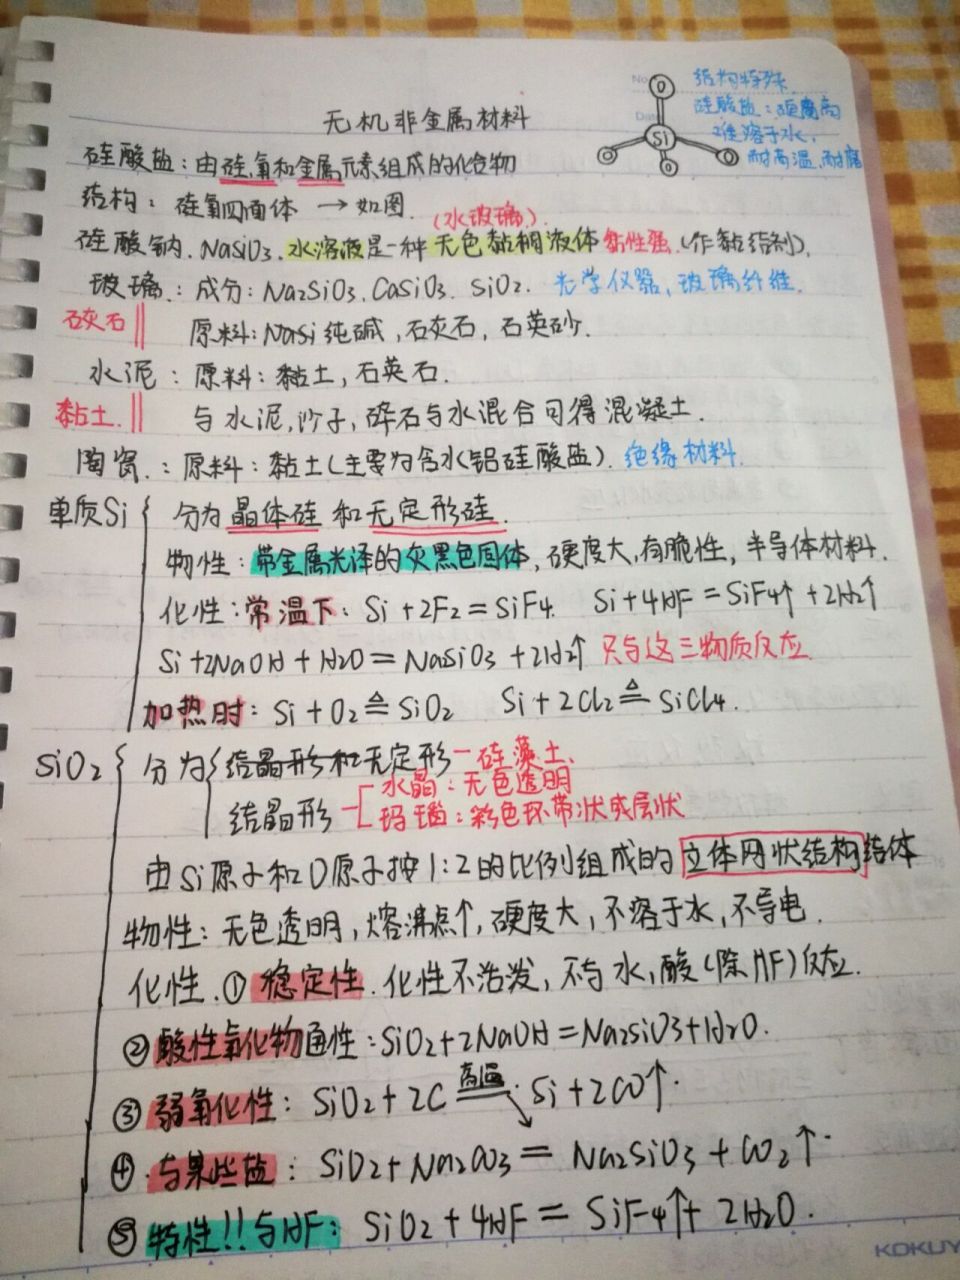 No.
Date
结构特殊
硅酸盐：硬度高
难溶于水，
耐高温，耐磨
O
Si
O
O
O
无机非金属材料
硅酸盐：由硅氧和金属元素组成的化合物
结构：硅氧四面体 → 如图.
(水玻璃).
硅酸钠. NaSiO3. 水溶液是一种无色黏稠液体 黏性强.(作黏结剂).
玻璃：成分：Na2SiO3. CaSiO3. SiO2. 光学仪器，玻璃纤维.
石灰石 原料：NaSi 纯碱，石灰石，石英砂.
水泥：原料：黏土，石英石.
黏土. 与水泥，沙子，碎石与水混合可得混凝土.
陶瓷.：原料：黏土(主要为含水铝硅酸盐). 绝缘材料.
单质Si { 分为晶体硅和无定形硅.
物性：带金属光泽的灰黑色固体，硬度大，有脆性，半导体材料.
化性：常温下：Si+2F2=SiF4. Si+4HF=SiF4↑+2H2↑
Si+2NaOH+H2O=NaSiO3+2H2↑ 只与这三物质反应
加热时：Si+O2 ≜ SiO2 Si+2Cl2 ≜ SiCl4.
SiO2 { 分为 { 结晶形和无定形 — 硅藻土、
水晶：无色透明
结晶形 玛瑙：彩色环带状或层状
由Si原子和O原子按1:2的比例组成的立体网状结构结体
物性：无色透明，熔沸点↑，硬度大，不溶于水，不导电.
化性. ① 稳定性. 化性不活泼，不与水，酸(除HF)反应.
② 酸性氧化物通性：SiO2+2NaOH=Na2SiO3+H2O.
③ 弱氧化性：SiO2+2C 高温 Si+2CO↑.
④. 与某些盐：SiO2+Na2CO3 = Na2SiO3+CO2↑.
⑤ 特性!! 与HF：SiO2+4HF = SiF4↑+2H2O.
KOKUY